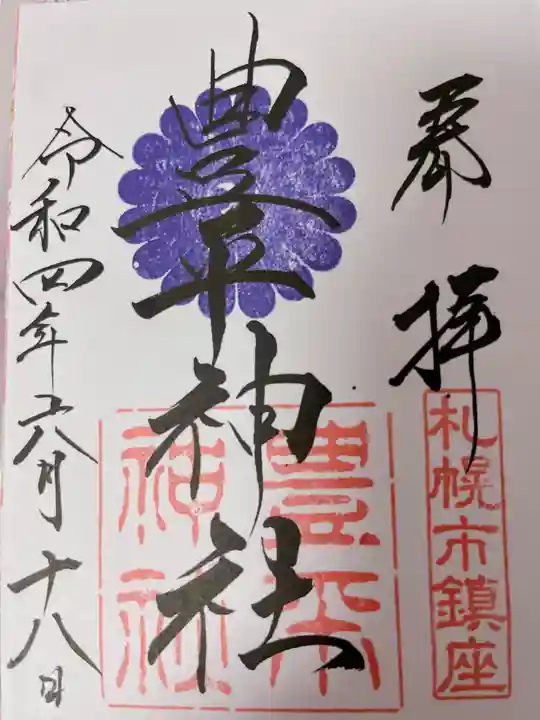 奉拝
札幌市鎮座
豊平神社
豊平神社
令和四年六月十八日